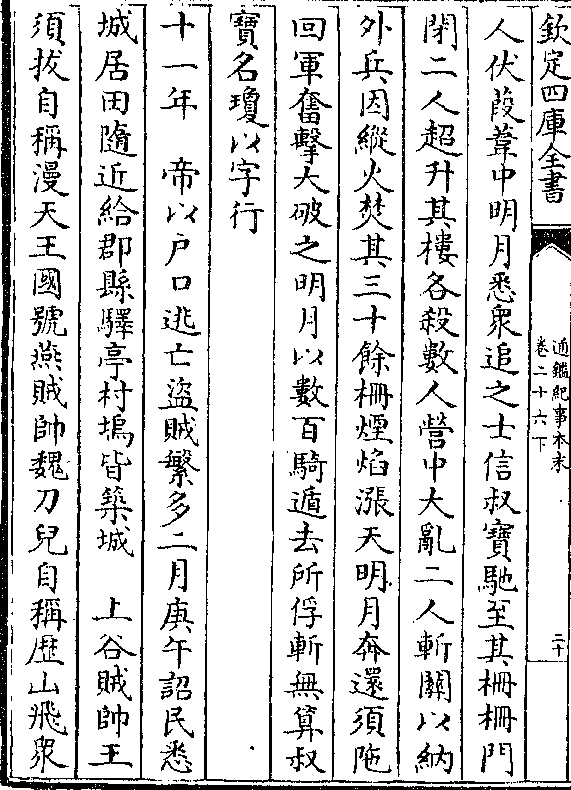 欽定四庫全書
通鑑紀事本末
卷二十六下
二十
人伏葭葦中明月悉衆追之士信叔寶馳至其柵柵門
閉二人超升其樓各殺數人營中大亂二人斬關以納
外兵因縱火焚其三十餘柵煙焰漲天明月奔還須陁
回軍奮擊大破之明月以數百騎遁去所俘斬無算叔
寶名瓊以字行
十一年　帝以户口逃亡盜賊繁多二月庚午詔民悉
城居田隨近給郡縣驛亭村塢皆築城　上谷賊帥王
須拔自稱漫天王國號燕賊帥魏刀兒自稱歴山飛衆